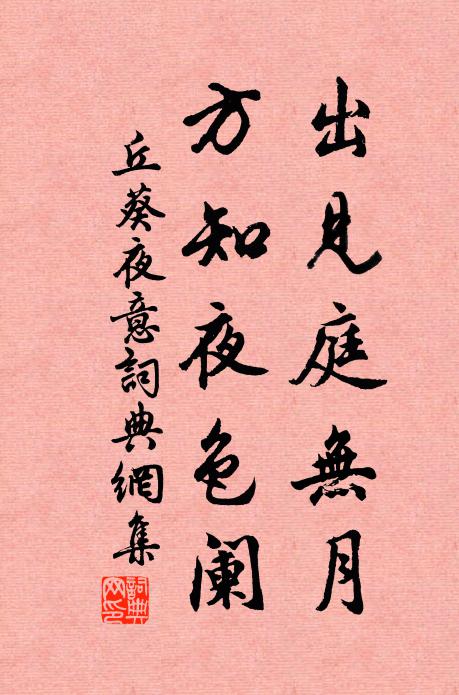 出見庭無月
方知夜色阑
丘葵夜意詞典網集
詞典
網印